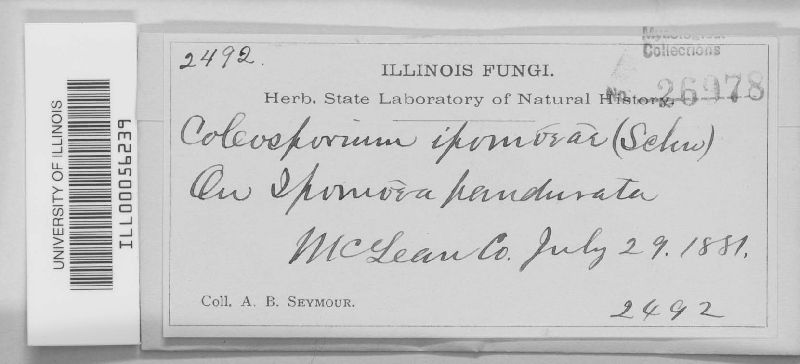 UNIVERSITY OF ILLINOIS
ILL00056239
Mycological
Collections
2492.
ILLINOIS FUNGI.
No. 26978
Herb. State Laboratory of Natural History.
Coleosporium ipomœae (Schw)
On Ipomœa pandurata
McLean Co. July 29. 1881.
Coll. A. B. SEYMOUR.
2492